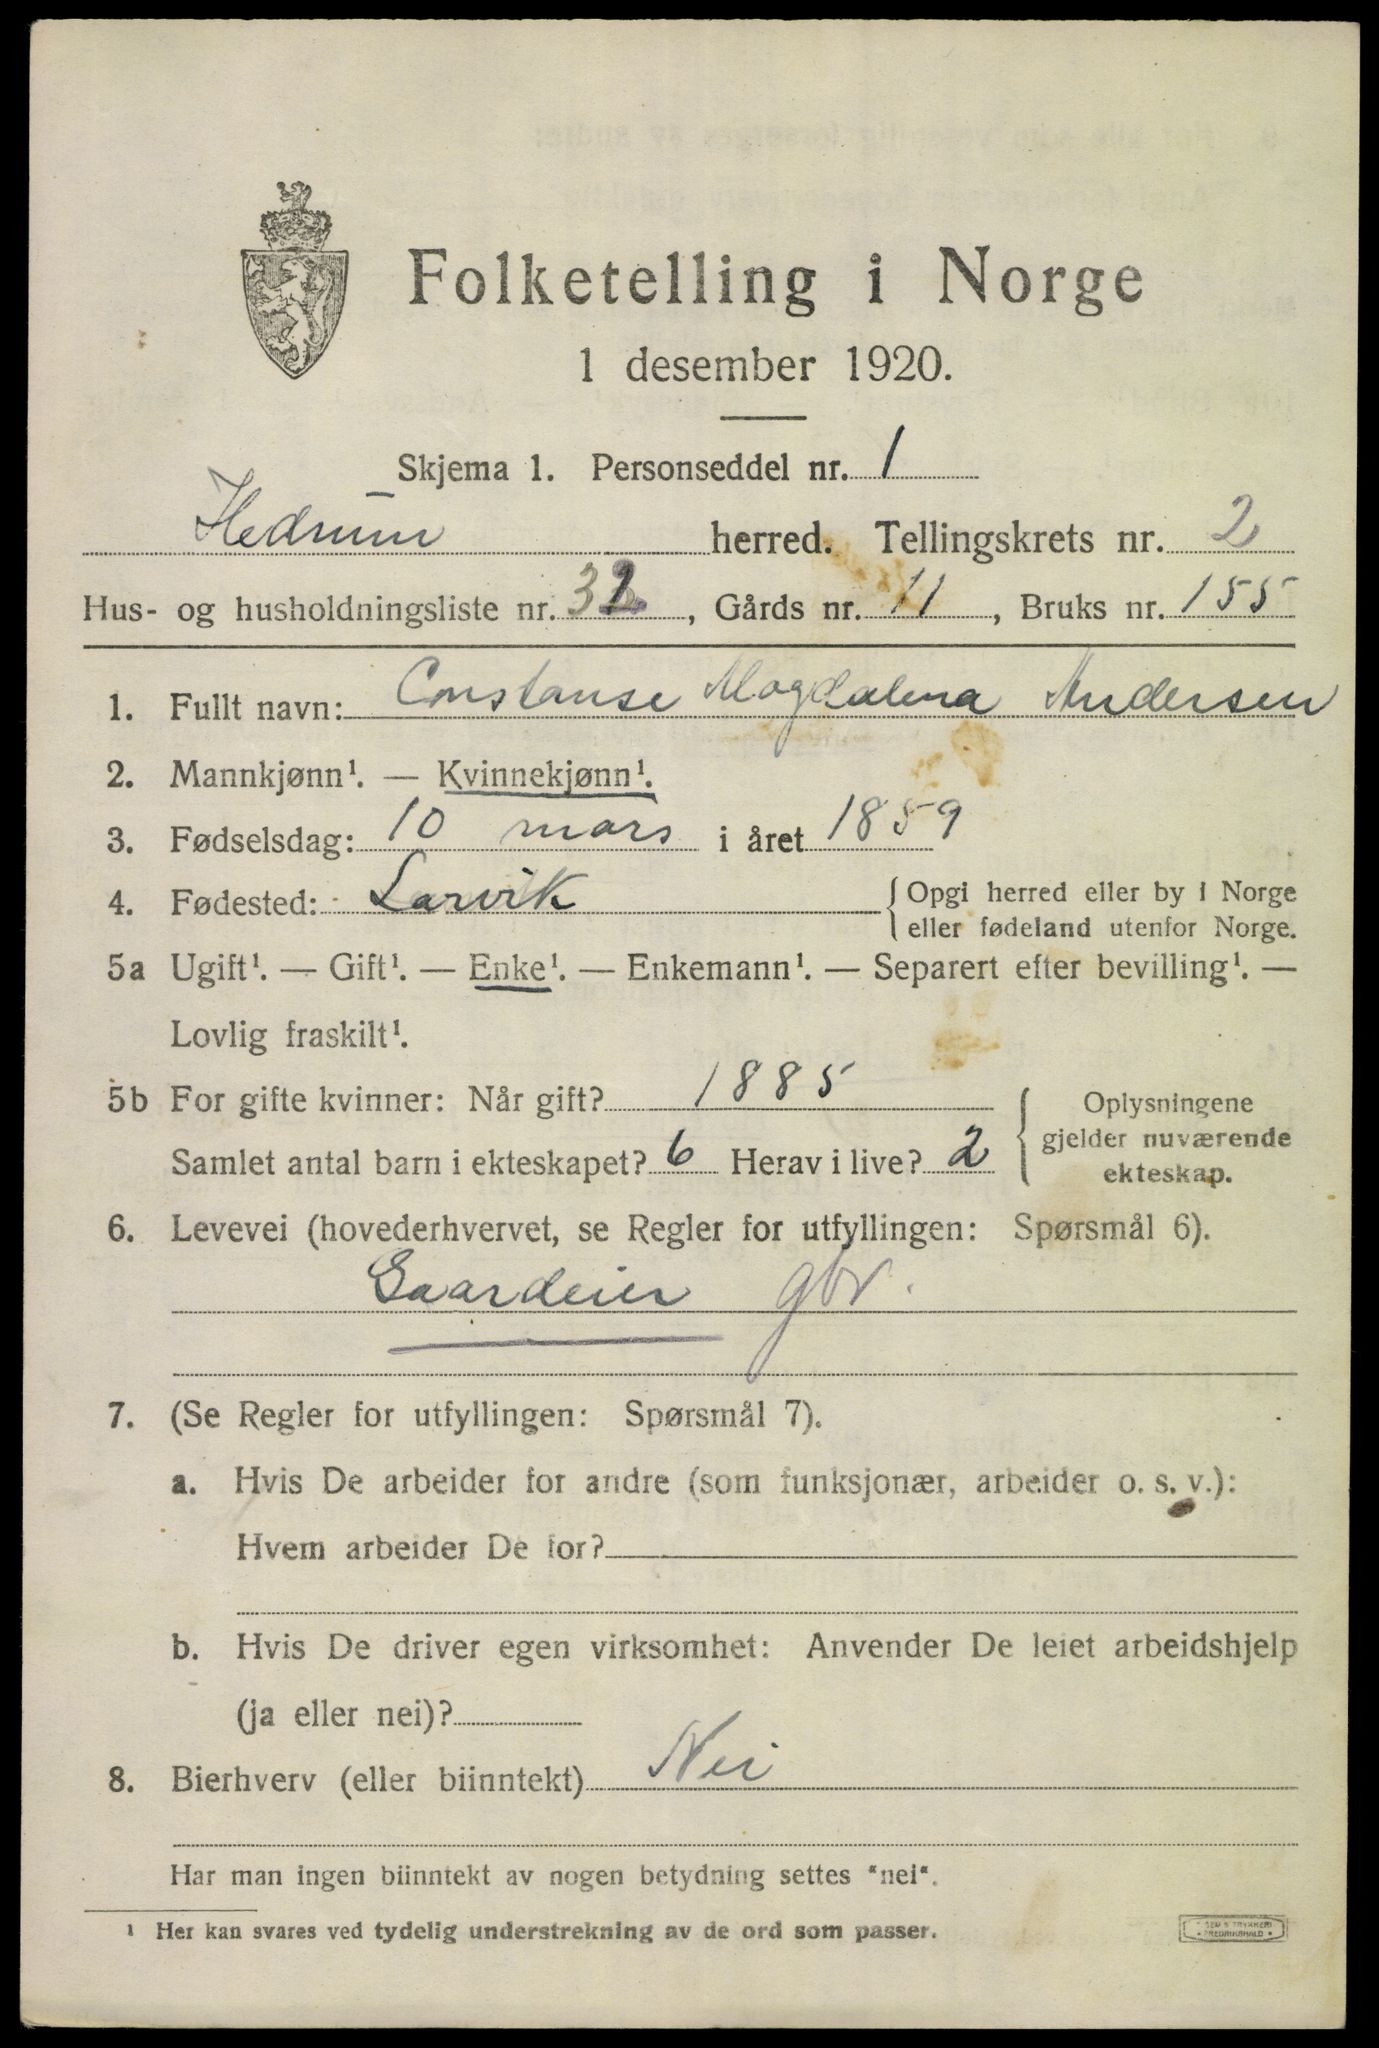 Folketelling i Norge
1 desember 1920.
Skjema 1. Personseddel nr. 1
Hedrum herred. Tellingskrets nr. 2
Hus- og husholdningsliste nr. 32, Gårds nr. 11, Bruks nr. 155
1. Fullt navn: Constanse Magdalena Andersen
2. Mannkjønn¹. — Kvinnekjønn¹.
3. Fødselsdag: 10 mars i året 1859
4. Fødested: Larvik { Opgi herred eller by i Norge
eller fødeland utenfor Norge.
5a Ugift¹. — Gift¹. — Enke¹. — Enkemann¹. — Separert efter bevilling¹. —
Lovlig fraskilt¹.
5b For gifte kvinner: Når gift? 1885
Samlet antal barn i ekteskapet? 6 Herav i live? 2
{ Oplysningene
gjelder nuværende
ekteskap.
6. Levevei (hovederhvervet, se Regler for utfyllingen: Spørsmål 6).
Gaardeier gbr.
7. (Se Regler for utfyllingen: Spørsmål 7).
a. Hvis De arbeider for andre (som funksjonær, arbeider o. s. v.):
Hvem arbeider De for?
b. Hvis De driver egen virksomhet: Anvender De leiet arbeidshjelp
(ja eller nei)?
8. Bierhverv (eller biinntekt) Nei
Har man ingen biinntekt av nogen betydning settes "nei".
¹ Her kan svares ved tydelig understrekning av de ord som passer.
TRYKKERI
FREDRIKSHALD